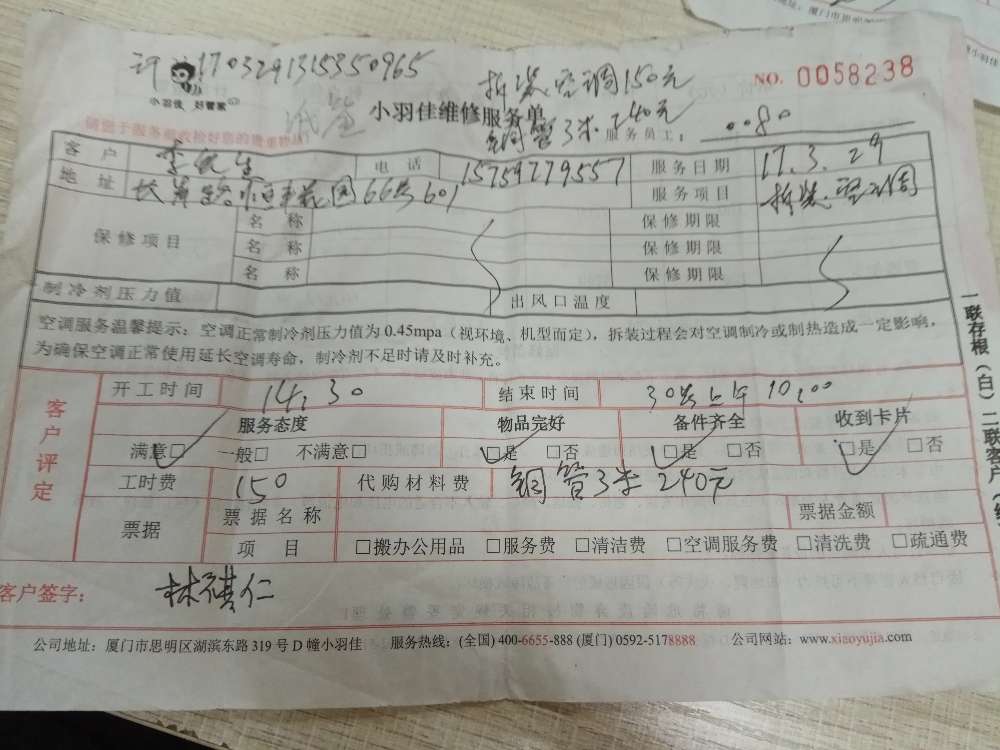 1703291315350965
拆装空调150元
NO. 0058238
小羽佳 好管家
小羽佳维修服务单
铜管3米240元
服务员工: 0080
客户 李先生 电话 15759779557 服务日期 17.3.29
地址 66号601 服务项目 拆装空调
保修项目
名称 保修期限
名称 保修期限
名称 保修期限
制冷剂压力值 出风口温度
空调服务温馨提示:空调正常制冷剂压力值为0.45mpa(视环境、机型而定),拆装过程会对空调制冷或制热造成一定影响,
为确保空调正常使用延长空调寿命,制冷剂不足时请及时补充。
客户评定
开工时间 14:30 结束时间 30号上午10:00
服务态度 物品完好 备件齐全 收到卡片
满意□ 一般□ 不满意□ □是 □否 □是 □否 □是 □否
工时费 150 代购材料费 铜管3米 240元
票据 票据名称 票据金额
项目 □搬办公用品 □服务费 □清洁费 □空调服务费 □清洗费 □疏通费
客户签字: 林祺仁
公司地址:厦门市思明区湖滨东路319号D幢小羽佳 服务热线:(全国)400-6655-888 (厦门)0592-5178888 公司网站:www.xiaoyujia.com
一联存根(白)二联客户(